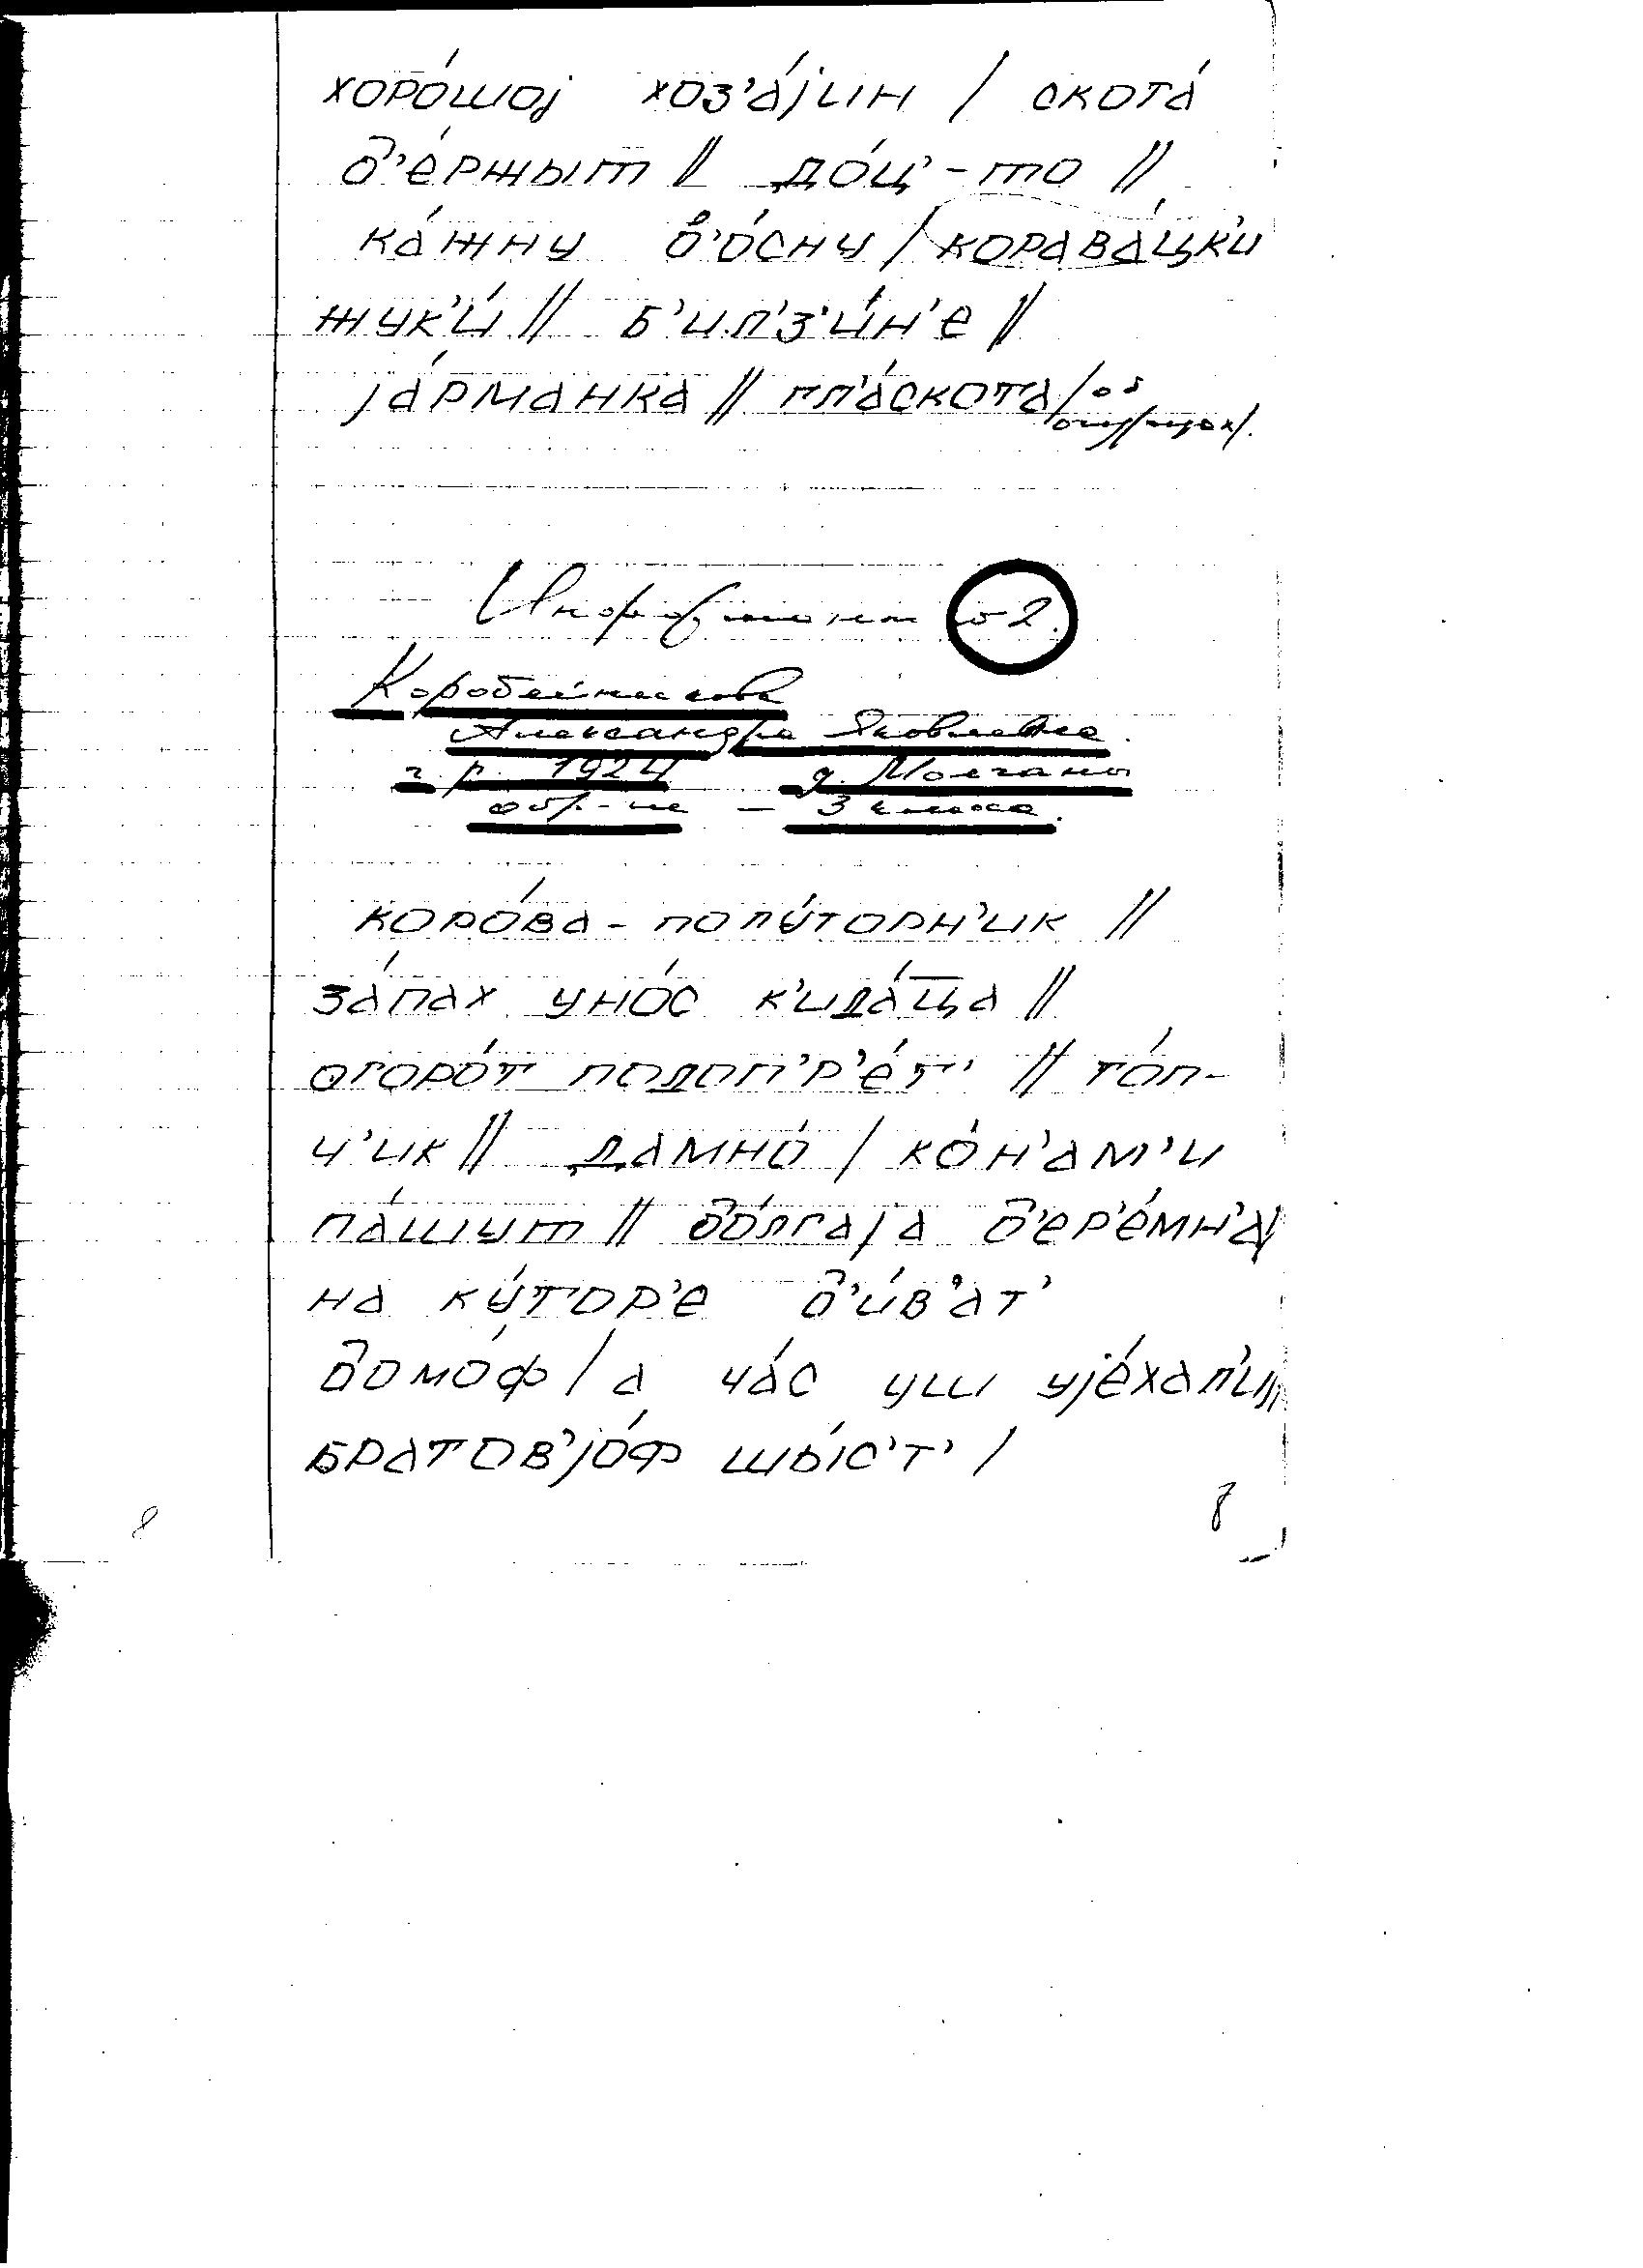 хоро́шој хоз'а́јин / скота́
д'е́ржыт // до́ц'-то //
ка́жну в'о́сну / карава́цк'и
жук'и́ // б'ил'з'и́н'е //
ја́рманка // пл'а́скота /об
огурцах/.
Информант № 2.
Коробейникова
Александра Яковлевна.
г.р. 1924 д. Молганы
обр-ие – 3 класса.
коро́ва - полу́торн'ик //
за́пах уно́с к'ида́ца //
огоро́т подоп'р'е́т' // то́п-
ч'ик // дамно́ / ко́н'ам'и
па́шут // до́лгаја д'ер'е́мн'а/
на ку́тор'е д'и́в'ат'
домо́ф / а ча́с уш ује́хал'и//
братов'јо́ф шы́с'т' /
8 8